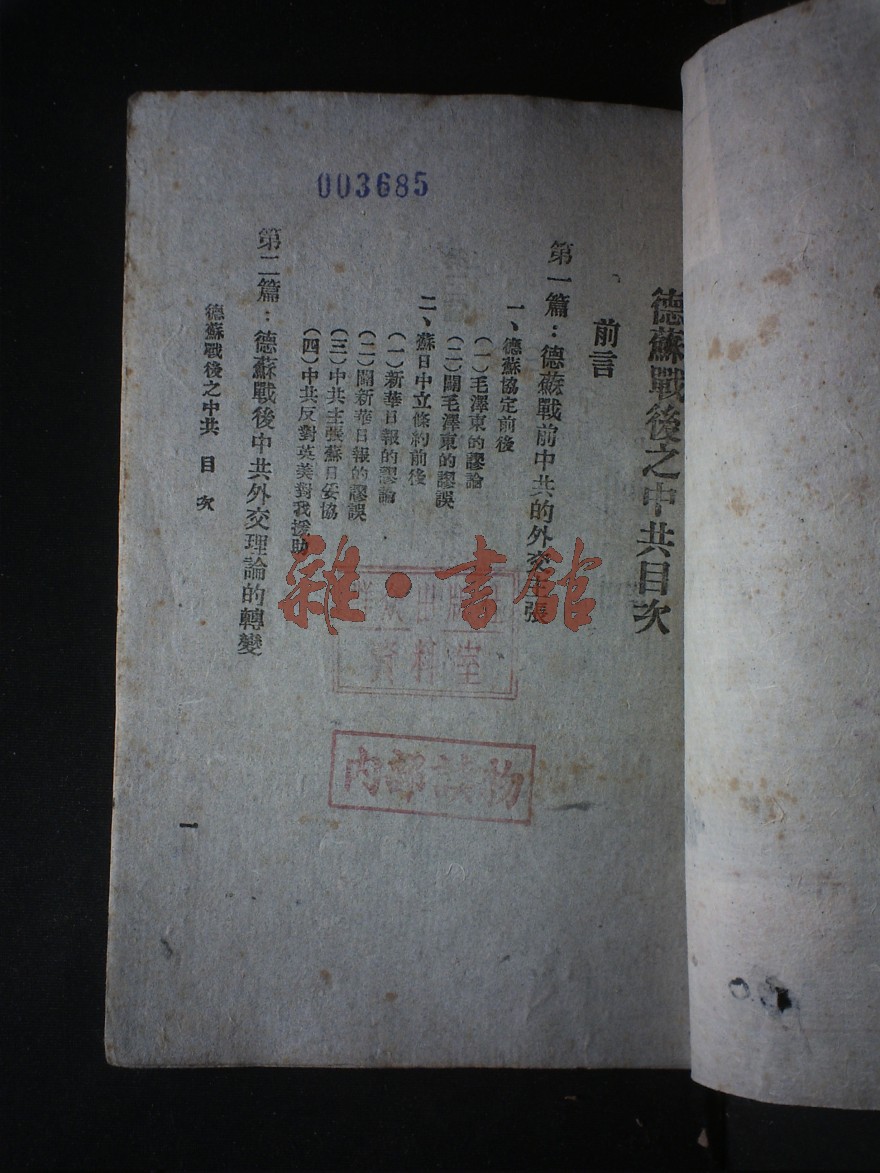 003685
德蘇戰後之中共目次
前言
第一篇：德蘇戰前中共的外交主張
一、德蘇協定前後
(一)毛澤東的謬論
(二)闢毛澤東的謬誤
二、蘇日中立條約前後
(一)新華日報的謬論
(二)闢新華日報的謬誤
(三)中共主張蘇日妥協
(四)中共反對英美對我援助
第二篇：德蘇戰後中共外交理論的轉變
德蘇戰後之中共 目次
一
雜·書館
資料室
內部讀物